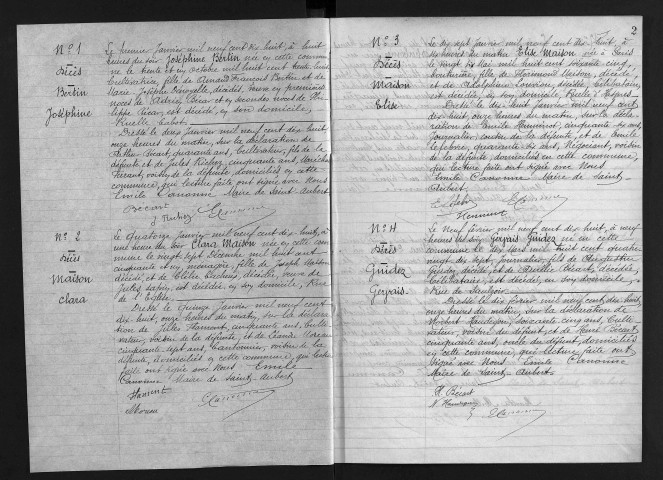 N° 1
Décès
Bertin
Joséphine
Le premier janvier mil neuf cent dix huit, à huit
heures du soir Joséphine Bertin née en cette commune
le trente et un octobre mil huit cent trente huit
cultivatrice, fille de François Bertin et de
Marie Joseph décédés, veuve en premières
noces de Bécar et en secondes noces de
Bécar, est décédée, en son domicile,
Ruelle
Dressé le deux janvier mil neuf cent dix huit,
onze heures du matin, sur la déclaration de
Bécart, quarante ans, cultivateur, fils de la
défunte et de Jules Richez, cinquante ans, Maréchal
Ferrant, voisin de la défunte, domiciliés en cette
commune, qui lecture faite ont signé avec Nous
Emile Canonne Maire de Saint-Aubert
Bécart
J. Richez Canonne
N° 2
Décès
Maison
Clara
Le quatorze janvier mil neuf cent dix huit, à
une heure du soir Clara Maison née en cette com
mune le vingt sept Décembre mil huit cent
cinquante et un, ménagère, fille de Joseph Maison
décédé, et de Elélie décédée, veuve de
Jules est décédée, en son domicile, Rue
de l'Eglise
Dressé le Quinze janvier mil neuf cent
dix-huit, onze heures du matin, sur la déclara
tion de Jules Hament, cinquante ans, culti
vateur, voisin de la défunte, et de Léandre
cinquante sept ans, Cantonnier, voisin de la
défunte, domiciliés en cette commune, qui lecture
faite ont signé avec Nous Emile
Canonne Maire de Saint-Aubert
Canonne
2
N° 3
Décès
Maison
Elise
Le dix sept janvier mil neuf cent dix huit, à
dix heures du matin Elise Maison née à Paris
le vingt six Mai mil huit cent soixante cinq,
couturière, fille de Florimond Maison, décédé,
et de Adolphine décédée, Célibataire,
est décédée, en son domicile, Ruelle d'
Dressé le dix huit janvier mil neuf cent
dix-huit, onze heures du matin, sur la décla
ration de Emile cinquante six ans,
journalier, cousin de la défunte, et de Emile
Lefebvre, quarante six ans, Négociant, voisin
de la défunte domiciliés en cette commune,
qui lecture faite ont signé avec Nous
Emile Canonne Maire de Saint-
Aubert.
Canonne
N° 4
Décès
Guidez
Gervais
Le Neuf février mil neuf cent dix huit, à neuf
heures du soir Gervais Guidez né en cette
commune le six mil huit cent quatre
vingt dix sept, journalier, fils de Augustin
Guidez, décédé, et de Aurélie Bécart, décédée,
Célibataire, est décédé, en son domicile,
Rue de
Dressé le dix février mil neuf cent dix huit,
onze heures du matin, sur la déclaration de
Norbert soixante cinq ans, Culti
vateur, voisin du défunt, et de Henri Bécart
cinquante ans, oncle du défunt, domiciliés
en cette commune, qui lecture faite ont
signé avec Nous Emile Canonne
Maire de Saint-Aubert.
H. Bécart
Canonne